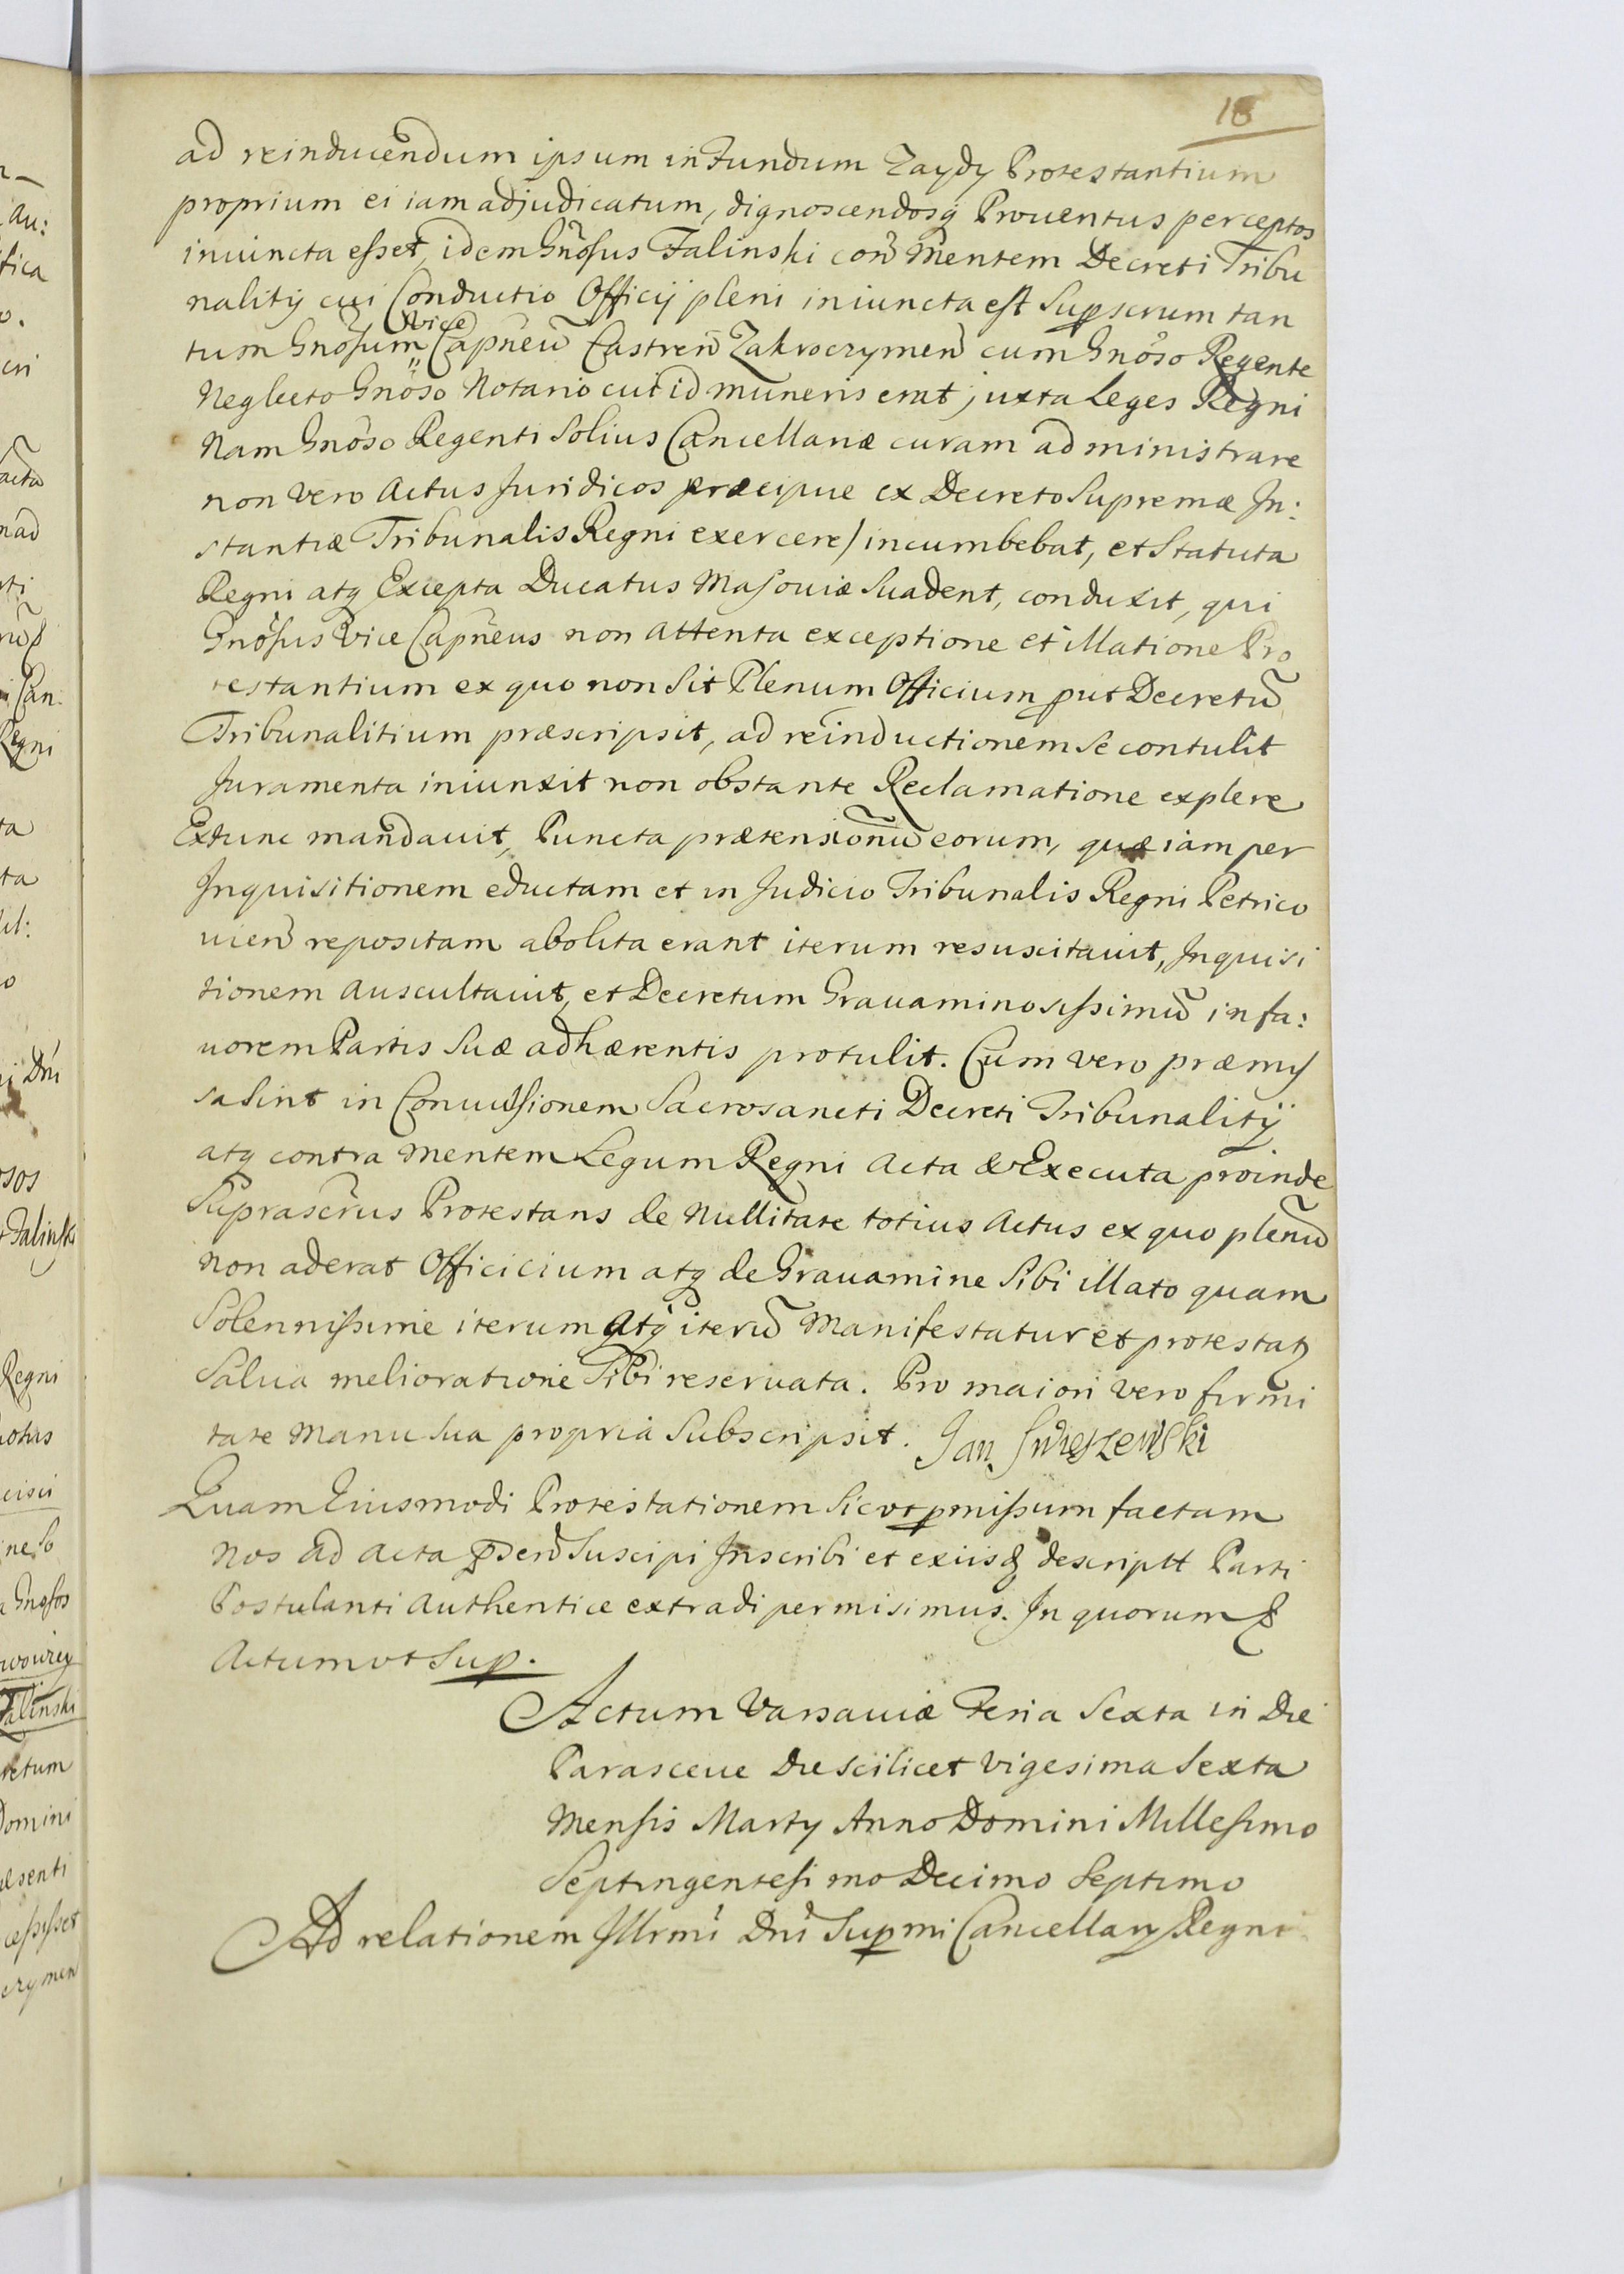 18
ad reinducendum ipsum in Fundum Zaydy Protestantium
proprium ei iam adjudicatum, dignoscendosq̃ Prouentus perceptos
iniuncta esset, idem Gnõsus Falinski con̄ Mentem Decreti Tribu
nalitij cui Conductio Officij pleni iniuncta est Supscrum tan
tum Gnõsum Vice Capneũ Castren̄ Zakroczymen̄ cum Gnõso Regente
Neglecto Gnõso Notario cui id muneris erat juxta Leges Regni
Nam Gnõso Regenti Solius Cancellariæ curam administrare
non vero Actus Juridicos præcipue ex Decreto Supremæ In:
stantiæ Tribunalis Regni exercere/ incumbebat, et Statuta
Regni atq Excepta Ducatus Masouiæ Suadent, conduxit, qui
Gnõsus Vice Capñeus non attenta exceptione et illatione Pro
testantium ex quo non Sit Plenum Officium put Decretũ
Tribunalitium præscripsit, ad reinductionem Se contulit
Juramenta iniunxit non obstante Reclamatione explere
Extunc mandauit, Puncta prætensionũ eorum, quæ iam per
Inquisitionem eductam et in Judicio Tribunalis Regni Petrico
uien̄ repositam abolita erant iterum resuscitauit, Inquisi
tionem auscultauit, et Decretum Grauaminosissimũ in fa:
uorem Partis Suæ adhærentis protulit. Cum vero præmis
sa Sint in Conuulsionem Sacrosancti Decreti Tribunalitij
atq contra mentem Legum Regni Acta & Executa proinde
Suprascrus Protestans de Nullitate totius Actus ex quo plenũ
non aderat Officicium atq de Grauamine Sibi illato quam
Solennissime iterum atq iterũ Manifestatur et protestatz
Salua melioratione Sibi reseruata. Pro maiori vero firmi
tate Manu Sua propria Subscripsit. Jan Swięszewski
Quam Eiusmodi Protestationem Sicut pmissum factam
Nos ad Acta pñsen̄ Suscipi Inscribi et exiisq descriptt Parti
Postulanti Authentice extradi permisimus. In quorum &
Actum ut Sup.
Actum Varsauiæ Feria Sexta in Die
Parasceue Die scilicet Vigesima Sexta
Mensis Martij Anno Domini Millesimo
Septingentesimo Decimo Septimo
Ad relationem Illrmi Dni Supmi Cancellarij Regni